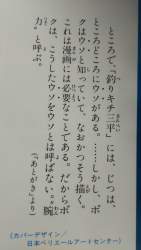 ところで、『釣りキチ三平』には、じつは、
ところどころにウソがある。……しかし、ボ
クはウソと知っていて、なおかつそう描く。
これは漫画には必要なことである。だからボ
クは、こうしたウソをウソとは呼ばない。〝腕
力〟と呼ぶ。
(「あとがき」より)
〈カバーデザイン／
日本ベリエールアートセンター〉